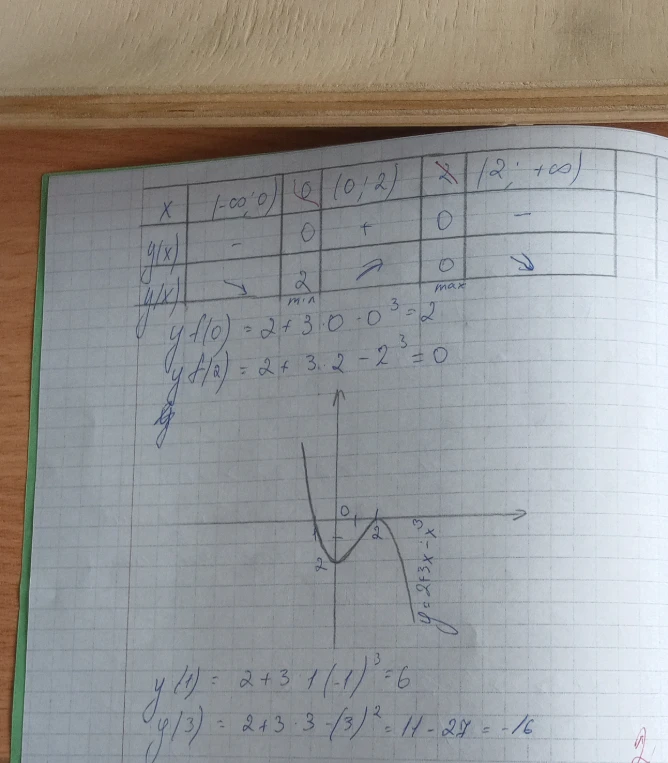 x (-∞; 0) 0 (0; 2) 2 (2; +∞)
y(x) - 0 + 0 -
y(x) ↘ 2 ↗ 0 ↘
min max
y f(0) = 2 + 3 · 0 - 0³ = 2
y f(2) = 2 + 3 · 2 - 2³ = 0
0
2
2
y = 2+3x-x³
y(1) = 2 + 3 · 1(-1)³ = 6
y(3) = 2 + 3 · 3 - (3)² = 11 - 27 = -16